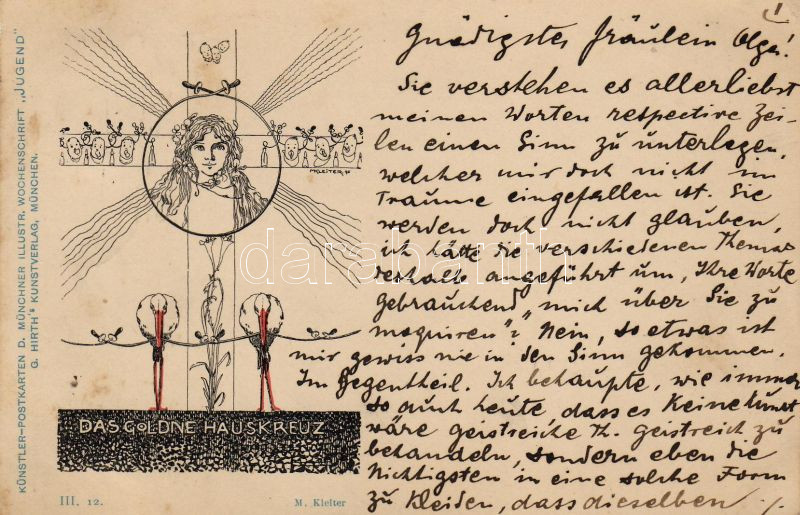 KÜNSTLER-POSTKARTEN D. MÜNCHNER ILLUSTR. WOCHENSCHRIFT „JUGEND"
G. HIRTH'S KUNSTVERLAG, MÜNCHEN.
MKLEITER
DAS GOLDNE HAUSKREUZ
III. 12.
M. Kleiter
darabanth
Gnädigstes Fräulein Olga!
Sie verstehen es allerliebst
meinen Worten respective Zei-
len einen Sinn zu unterlegen,
welcher mir doch nicht im
Traume eingefallen ist. Sie
werden doch nicht glauben,
ich hätte die verschiedenen Themas
deshalb angeführt um, Ihre Worte
gebrauchend „mich über Sie zu
moquiren"? Nein, so etwas ist
mir gewiss nie in den Sinn gekommen.
Im Gegentheil. Ich behaupte, wie immer
so auch heute, dass es keine Kunst
wäre geistreiche Th. geistreich zu
behandeln, sondern eben die
Nichtigsten in eine solche Form
zu kleiden, dass dieselben ./.